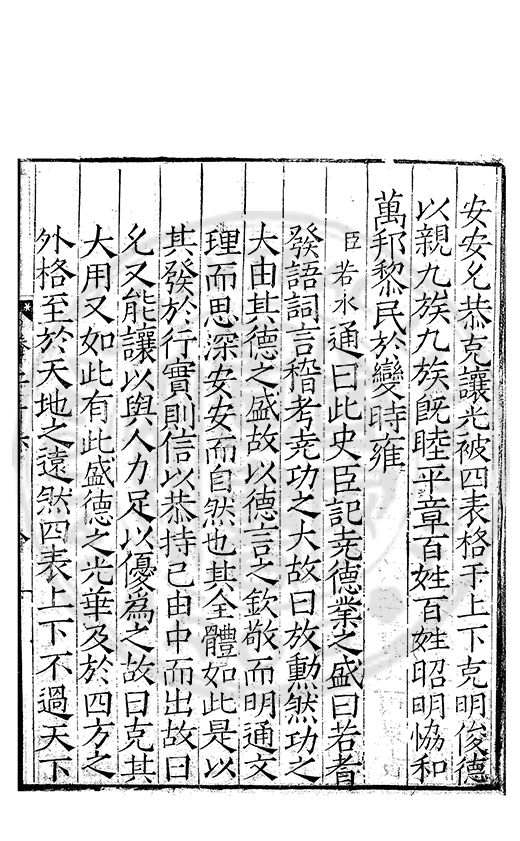 安安允恭克讓光被四表格于上下克明俊德
以親九族九族旣睦平章百姓百姓昭明恊和
萬邦黎民於變時雍
臣若水通曰此史臣記堯德業之盛曰若者
發語詞言稽考堯功之大故曰放勲然功之
大由其德之盛故以德言之欽敬而明通文
理而思深安安而自然也其全體如此是以
其發於行實則信以恭持己由中而出故曰
允又能讓以與人力足以優爲之故曰克其
大用又如此有此盛德之光華及於四方之
外格至於天地之遠然四表上下不過天下